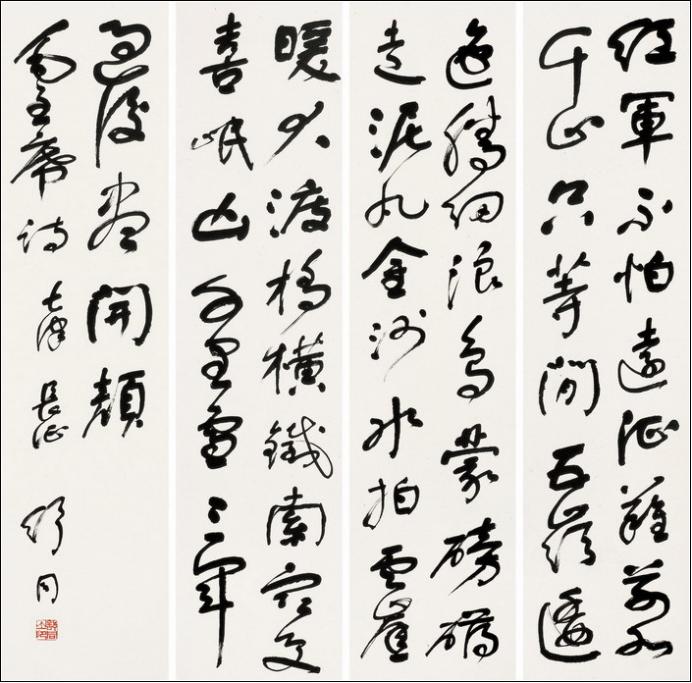 紅軍不怕遠征難萬水
千山只等閒五嶺逶
迤騰細浪烏蒙磅礴
走泥丸金沙水拍雲崖
暖大渡橋橫鐵索寒更
喜岷山千里雪三軍
過後盡開顏
毛主席詩 七律 長征 舒同